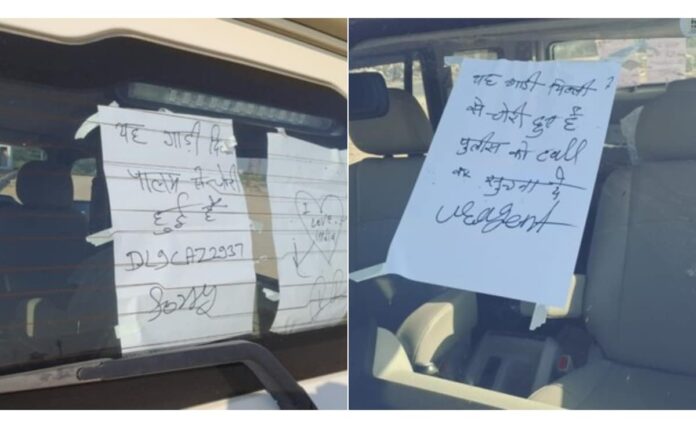 यह गाडी
पालम से चोरी
हुई है
DL9CAZ2937
Sorry
I
Love
India
यह गाडी दिल्ली
से चोरी हुई है
पुलीस को call
कर सुचना दे
Uergent